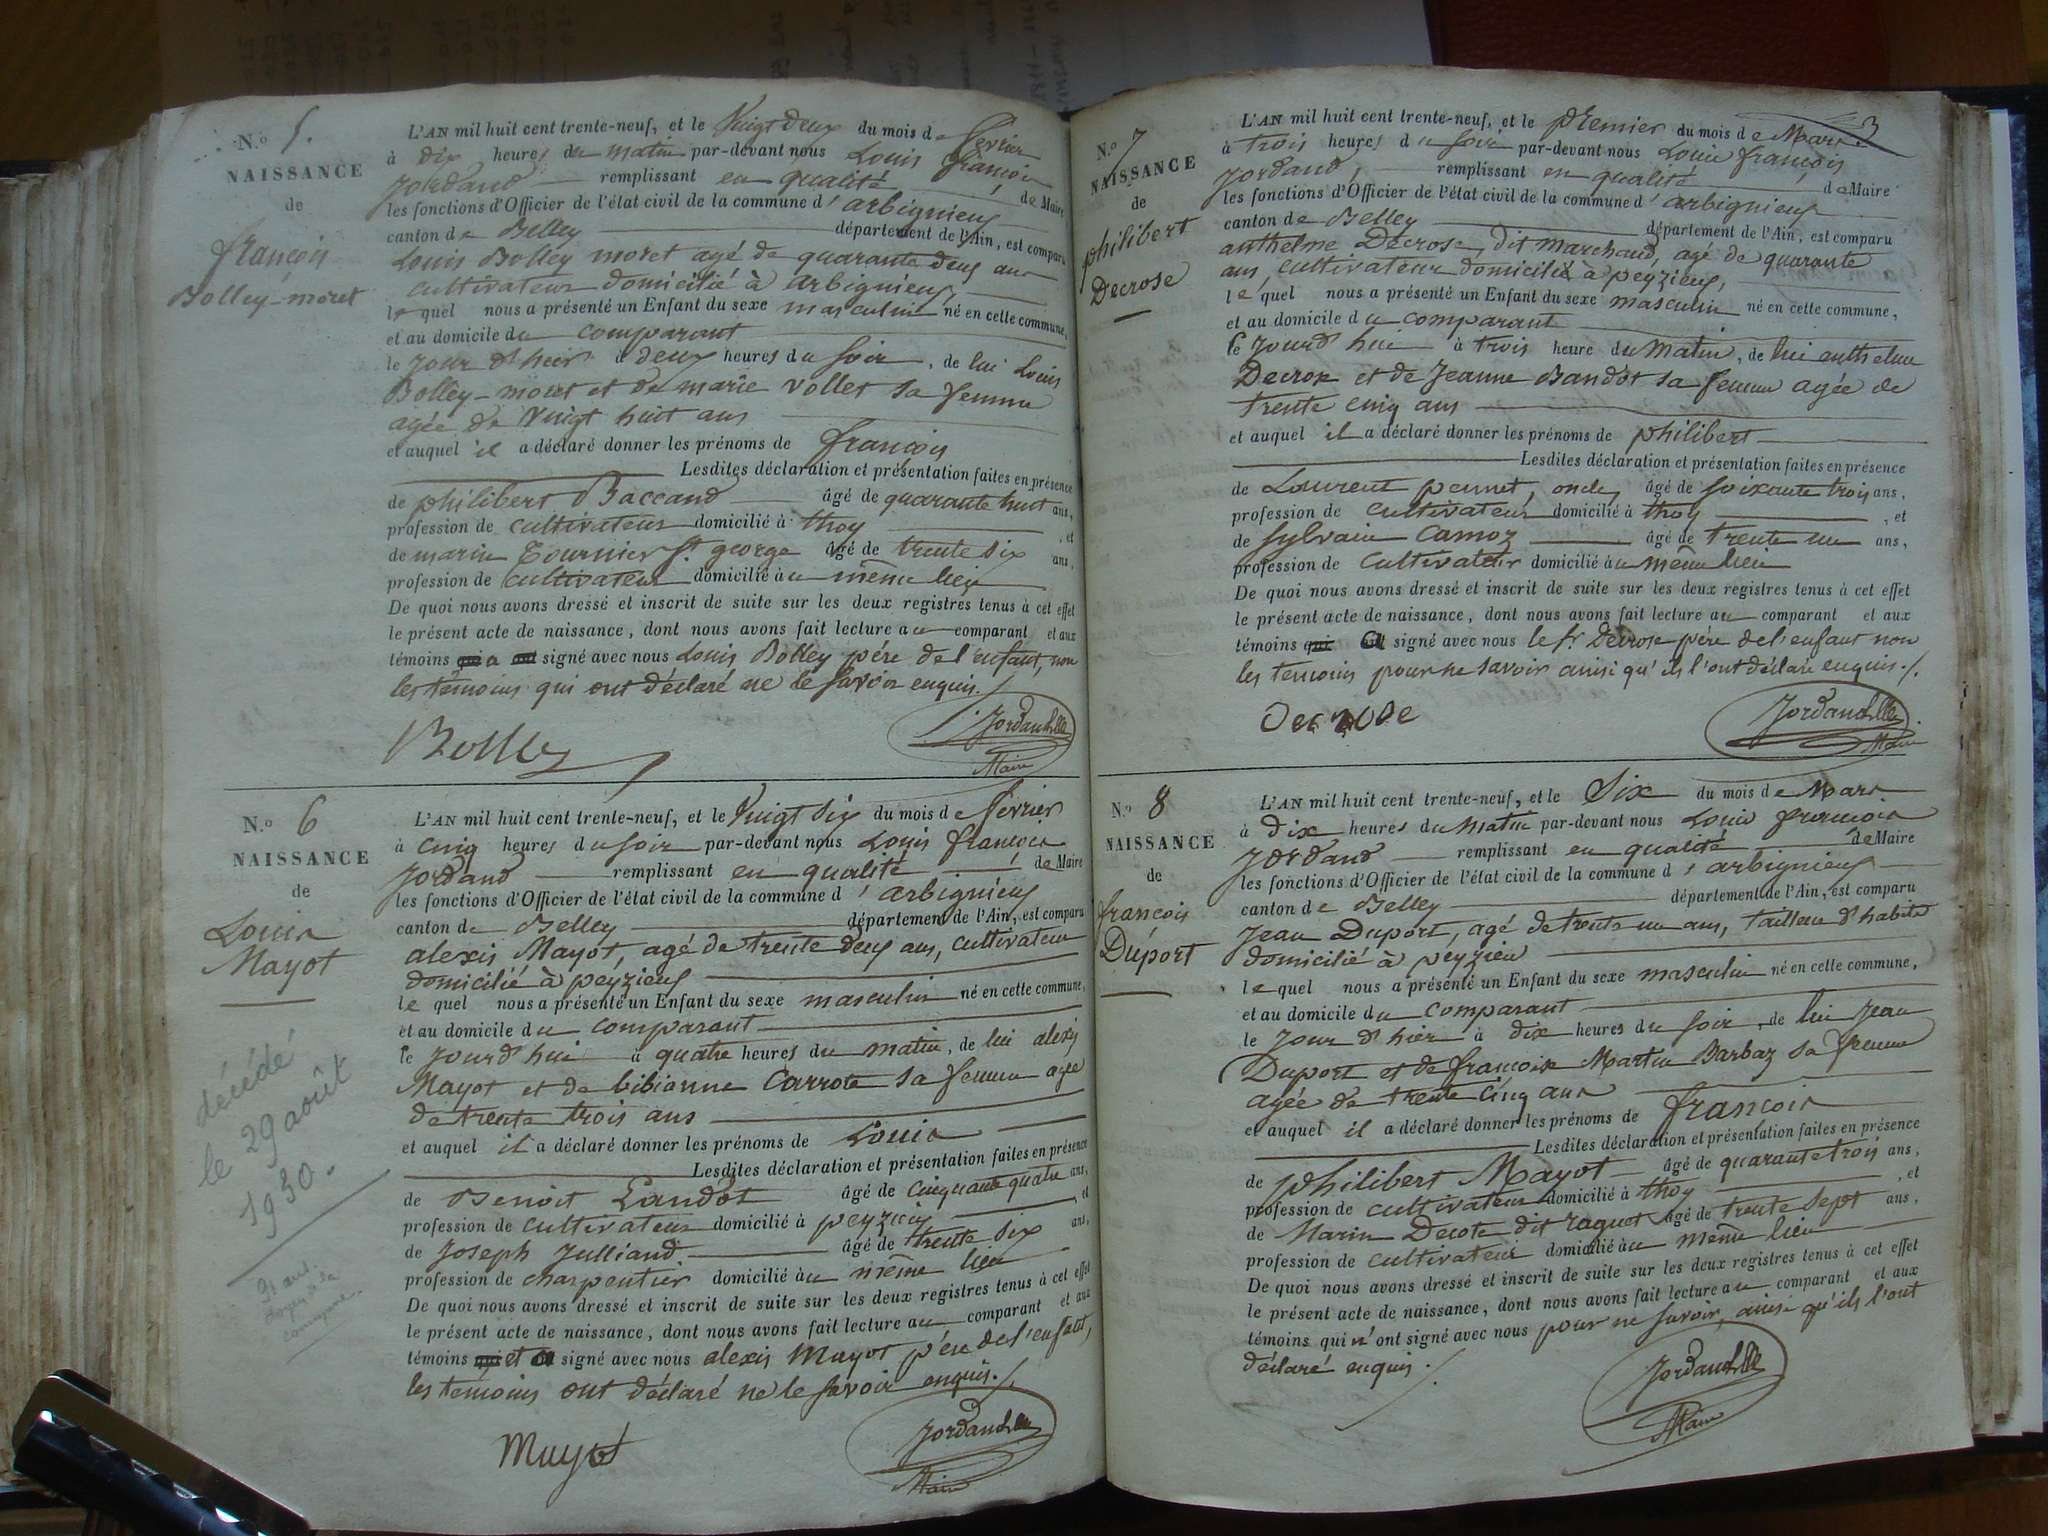 N.o 5.
NAISSANCE
de
françois
Bolley-moret
L'AN mil huit cent trente-neuf, et le Vuigt deux du mois de fevrier
à dix heures du matin par-devant nous Louis françois
Jordand remplissant en qualité de Maire
les fonctions d'Officier de l'état civil de la commune d'arbignieux
canton de Belley département de l'Ain, est comparu
Louis Bolley moret agé de quarante deux ans
cultivateur domicilié à arbignieux,
le quel nous a présenté un Enfant du sexe masculin né en cette commune,
et au domicile du comparant
le jour d'hier à deux heures du soir, de lui Louis
Bolley-moret et de marie vollet sa femme
agée de Vuigt huit ans
et auquel il a déclaré donner les prénoms de françois
Lesdites déclaration et présentation faites en présence
de philibert Baccand âgé de quarante huit ans,
profession de cultivateur domicilié à thoy, et
de marin Tournier St george âgé de trente six ans,
profession de cultivateur domicilié au même lieu
De quoi nous avons dressé et inscrit de suite sur les deux registres tenus à cet effet
le présent acte de naissance, dont nous avons fait lecture au comparant et aux
témoins qui a ont signé avec nous Louis Bolley père de l'enfant, non
les témoins qui ont déclaré ne le savoir enquis./.
Bolley
Jordand
Maire
N.o 6
NAISSANCE
de
Louis
Mayot
décédé
le 29 août
1930.
91 ans
doyen de la
commune
L'AN mil huit cent trente-neuf, et le Vuigt six du mois de fevrier
à cinq heures du soir par-devant nous Louis françois
Jordand remplissant en qualité de Maire
les fonctions d'Officier de l'état civil de la commune d'arbignieux
canton de Belley département de l'Ain, est comparu
alexis Mayot, agé de trente deux ans, cultivateur
domicilié à peyzieux
le quel nous a présenté un Enfant du sexe masculin né en cette commune,
et au domicile du comparant
le jourd'hui à quatre heures du matin, de lui alexis
Mayot et de bibianne Carrote sa femme agée
de trente trois ans
et auquel il a déclaré donner les prénoms de Louis
Lesdites déclaration et présentation faites en présence
de Benoit Landot âgé de cinquante quatre ans,
profession de cultivateur domicilié à peyzieu, et
de Joseph Julliand âgé de trente six ans,
profession de charpentier domicilié au même lieu
De quoi nous avons dressé et inscrit de suite sur les deux registres tenus à cet effet
le présent acte de naissance, dont nous avons fait lecture au comparant et aux
témoins qui et a signé avec nous alexis Mayot père de l'enfant,
les temoins ont déclaré ne le savoir enquis./.
Mayot
Jordand
Maire
3
N.o 7
NAISSANCE
de
philibert
Decrose
L'AN mil huit cent trente-neuf, et le premier du mois de Mars
à trois heures du soir par-devant nous Louis françois
Jordand, remplissant en qualité de Maire
les fonctions d'Officier de l'état civil de la commune d'arbignieux
canton de Belley département de l'Ain, est comparu
anthelme Decrose, dit marchand, agé de quarante
ans, cultivateur domicilié à peyzieux,
le quel nous a présenté un Enfant du sexe masculin né en cette commune,
et au domicile du comparant
le jourd'hui à trois heure du matin, de lui anthelme
Decrose et de Jeanne Bandot sa femme agée de
trente cinq ans
et auquel il a déclaré donner les prénoms de philibert
Lesdites déclaration et présentation faites en présence
de Laurent pennet, oncle, âgé de soixante trois ans,
profession de cultivateur domicilié à thoy, et
de sylvain Camoz âgé de trente un ans,
profession de cultivateur domicilié au même lieu
De quoi nous avons dressé et inscrit de suite sur les deux registres tenus à cet effet
le présent acte de naissance, dont nous avons fait lecture au comparant et aux
témoins qui a signé avec nous le sr Decrose père de l'enfant non
les temoins pour ne savoir ainsi qu'ils l'ont déclaré enquis./.
Decrose
Jordand
Maire
N.o 8
NAISSANCE
de
françois
Duport
L'AN mil huit cent trente-neuf, et le Six du mois de Mars
à dix heures du matin par-devant nous Louis françois
Jordand remplissant en qualité de Maire
les fonctions d'Officier de l'état civil de la commune d'arbignieux
canton de Belley département de l'Ain, est comparu
Jean Duport, agé de trente un ans, tailleur d'habits
domicilié à peyzieu
le quel nous a présenté un Enfant du sexe masculin né en cette commune,
et au domicile du comparant
le jour d'hier à dix heures du soir, de lui Jean
Duport et de françoise Martin Barbaz sa femme
agée de trente cinq ans
et auquel il a déclaré donner les prénoms de françois
Lesdites déclaration et présentation faites en présence
de philibert Mayot âgé de quarante trois ans,
profession de cultivateur domicilié à thoy, et
de Marin Decote dit raquet âgé de trente sept ans,
profession de cultivateur domicilié au même lieu
De quoi nous avons dressé et inscrit de suite sur les deux registres tenus à cet effet
le présent acte de naissance, dont nous avons fait lecture au comparant et aux
témoins qui n'ont signé avec nous pour ne savoir, ainsi qu'ils l'ont
déclaré enquis./.
Jordand
Maire